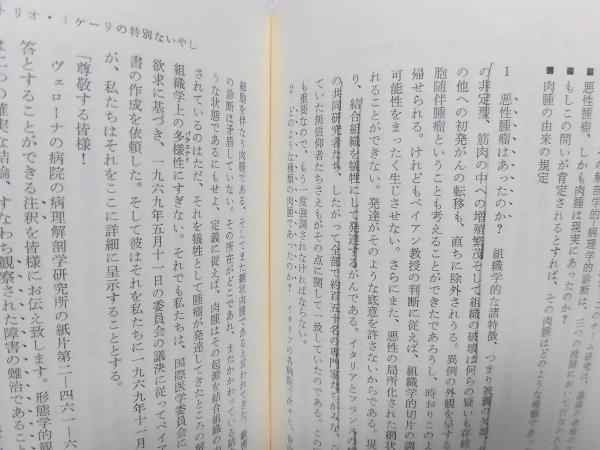 悪性腫瘍、しかも肉腫は現実にあったのか?
もしこの問いが肯定されるとすれば、その肉腫はどのような種類で
肉腫の由来の規定
1 悪性腫瘍はあったのか? 組織学的な諸特徴、つまり
の非定型、筋肉の中への増殖繁茂そして組織の破壊は何らの疑いも存続
の他への初発がんの転移も、直ちに除外されうる。異例の外観を呈する
胞随伴腫瘍ということも考えることができたであろうし、時おりこのよ
帰せられる。けれどもペイアン教授の判断に従えば、組織学的切片の調
可能性をまったく生じさせない。さらにまた、悪性の局所化された網状
れることができない。発達がそのような底意を許さないからである。現
り、結合組織を犠牲にして発達するがんである。イタリアとフランスの
の共同研究者たち、したがって全部で約百五十名の専門家たちがみな、こ
ていた無信仰者たちさえもがその点に関して一致していたのである。この
も重要なので、もう一度強調されなければならない。
2 どのような種類の肉腫であったのか? イタリアの各病院で次々
細胞を伴なう肉腫である、そしてまた網状肉腫であると言われてきた。
の診断は矛盾していない。その所在がどこであれ、またかかわっている結
うな状態であるにもせよ、定義に従えば、肉腫はその起源を結合組織の
されているのはただ、それを犠牲として腫瘍が発達してきたところの解
組織学上の多様性にすぎない。それでも私たちは、国際医学委員会に
バラエティ
欲求に基づき、一九六九年五月十一の委員会の議決に従ってペイア
書の作成を依頼した。そして彼はそれを私たちに一九六九年十一月
が、私たちはそれをここに詳細に呈示することとする。
「尊敬する皆様!
ヴェローナの病院の病理解剖学研究所の紙片第二一四六一一六
答とすることができる注釈を皆様にお伝え致します。形態学的観
は二つの確実な結論、すなわち観察された障害の難治であること
トリオ・ミケーリの特別ないやし